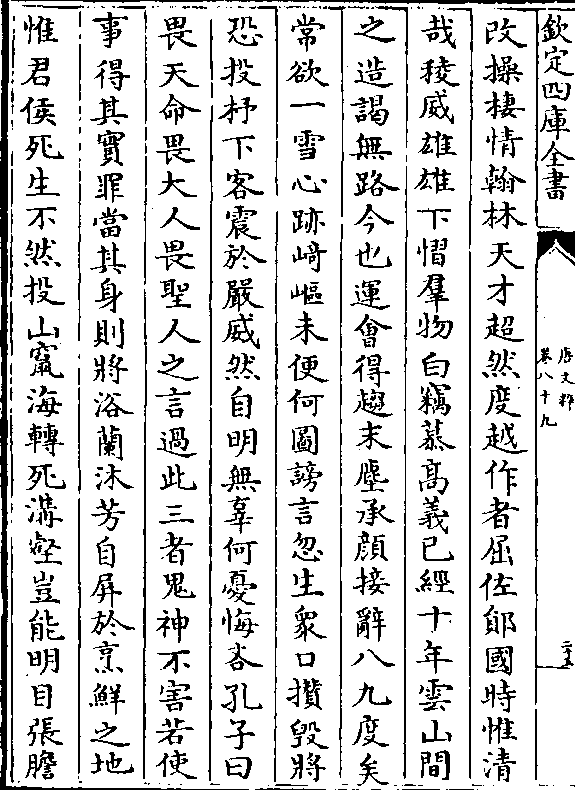 欽定四庫全書
唐文粹
卷八十九
二十五
改操棲情翰林天才超然度越作者屈佐鄖國時惟清
哉稜威雄雄下慴羣物白竊慕髙義已經十年雲山間
之造謁無路今也運會得趨末塵承顔接辭八九度矣
常欲一雪心跡﨑嶇未便何圖謗言忽生衆口攢毁將
恐投杼下客震於嚴威然自明無辜何憂悔吝孔子曰
畏天命畏大人畏聖人之言過此三者鬼神不害若使
事得其實罪當其身則將浴蘭沐芳自屏於烹鮮之地
惟君侯死生不然投山竄海轉死溝壑豈能明目張膽